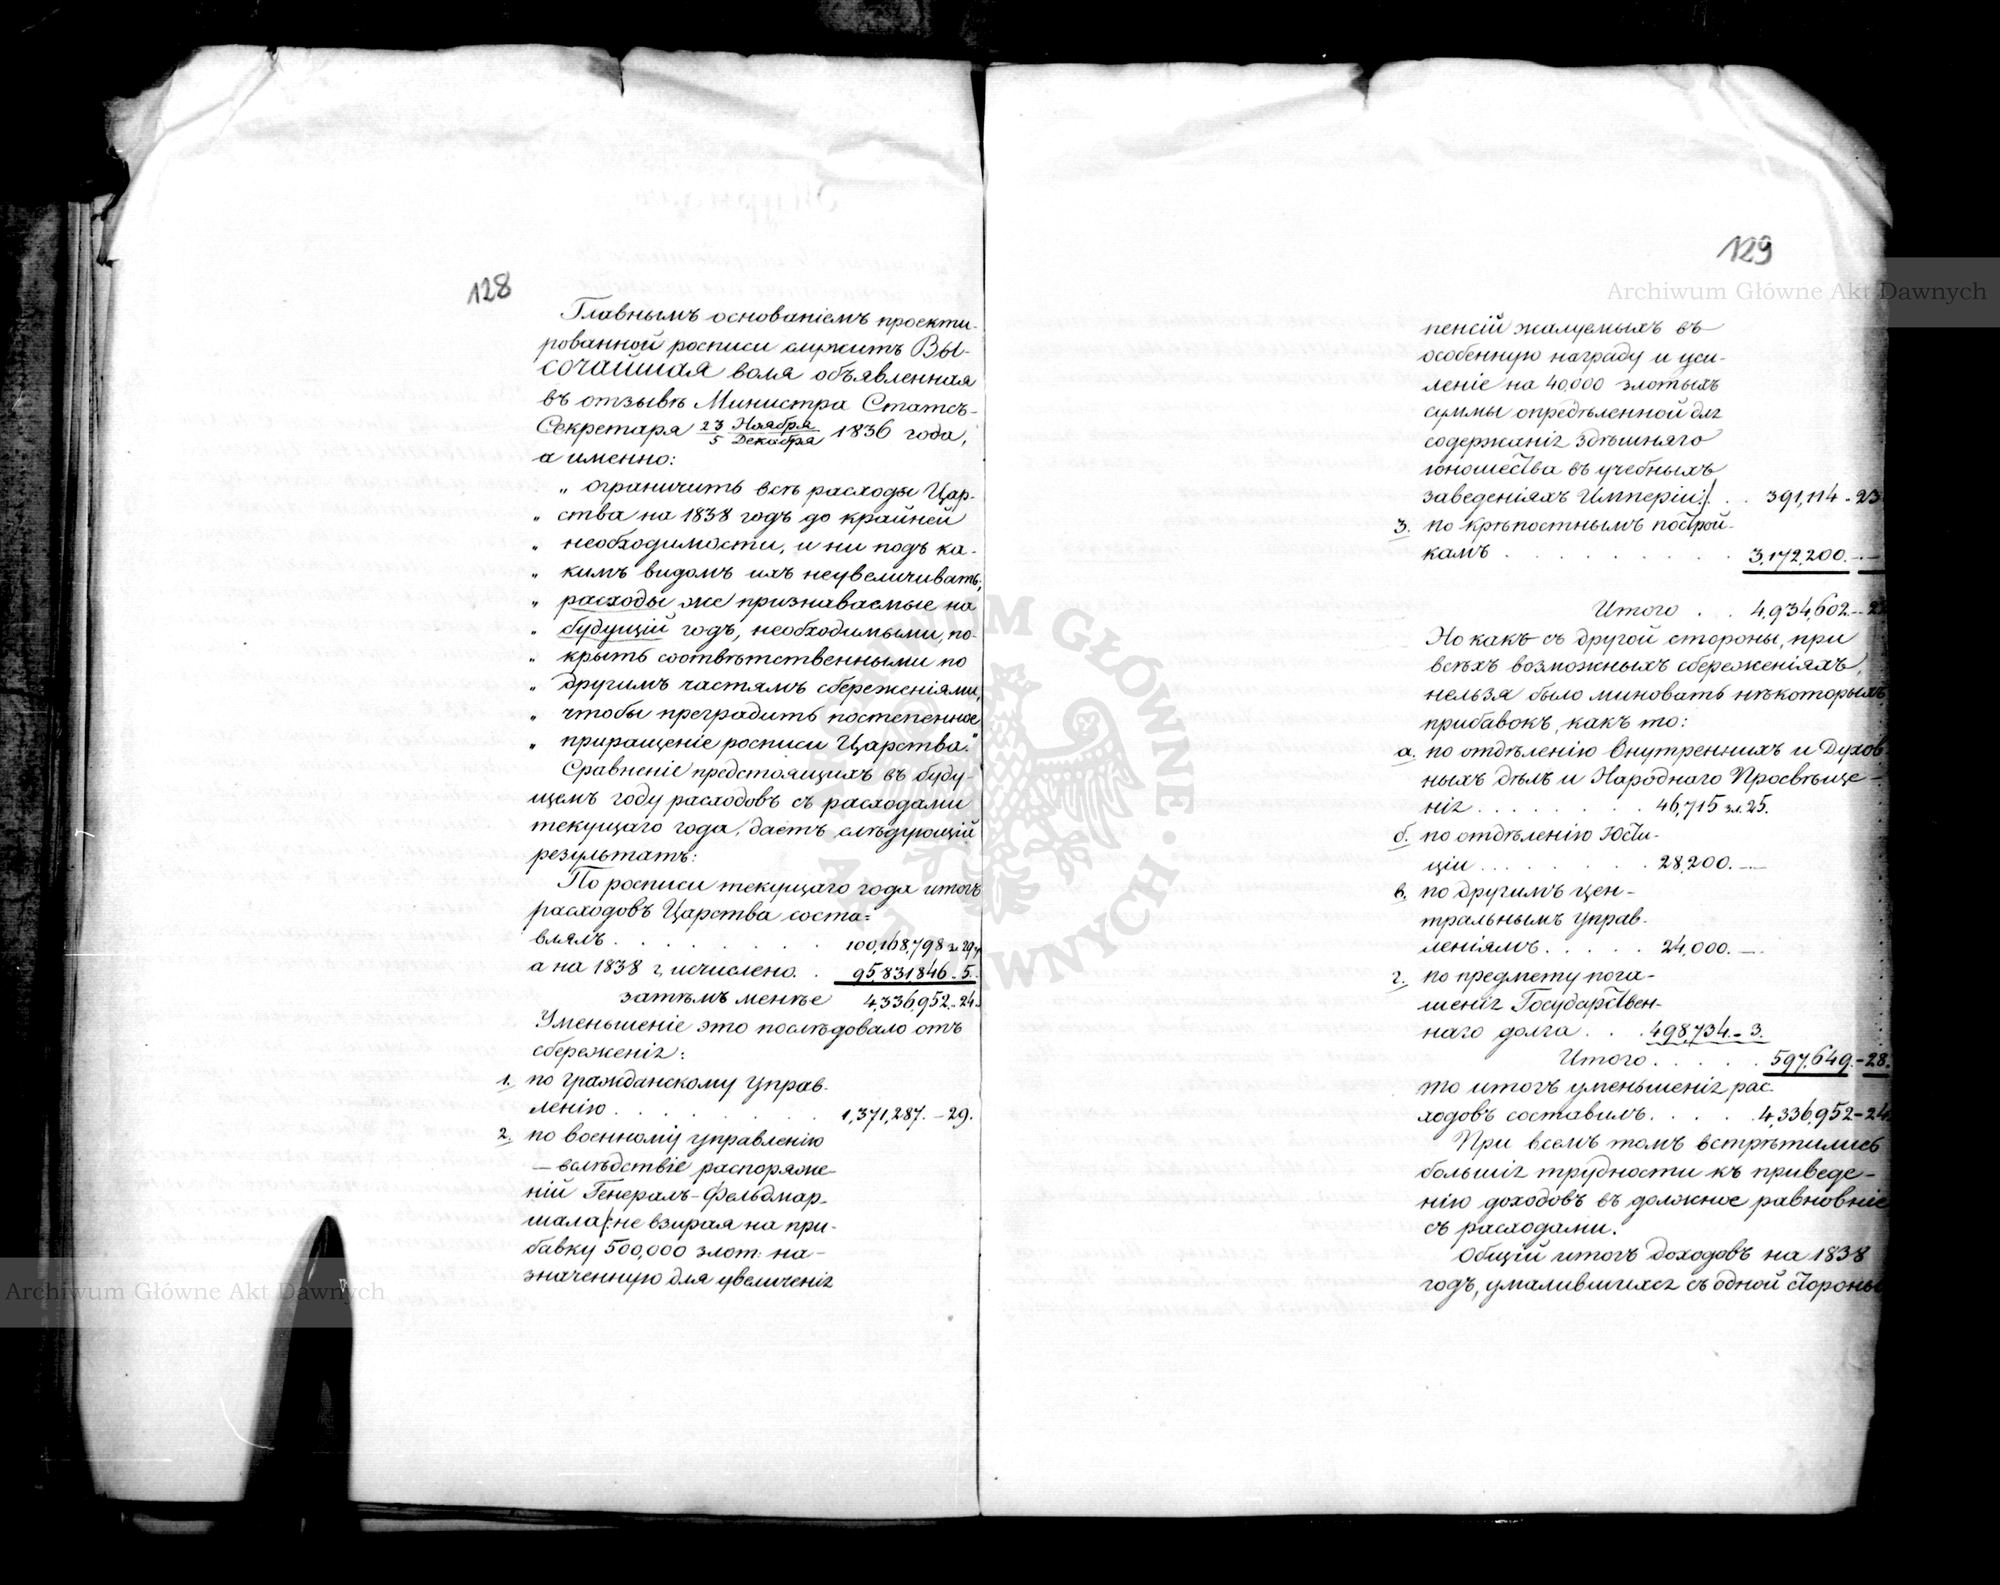 128
Главнымъ основаніемъ проекти-
рованной росписи служитъ Вы-
сочайшая воля объявленная
въ отзывѣ Министра Статсъ-
Секретаря 23 Ноября / 5 Декабря 1836 года,
а именно:
„ ограничить всѣ расходы Цар-
„ ства на 1838 годъ до крайней
„ необходимости, и ни подъ ка-
„ кимъ видомъ ихъ неувеличивать;
„ расходы же признаваемые на
„ будущій годъ, необходимыми, по-
„ крыть соотвѣтственными по
„ другимъ частямъ сбереженіями,
„ чтобы преградить постепенное
„ приращеніе росписи Царства."
Сравненіе предстоящихъ въ буду-
щемъ году расходовъ съ расходами
текущаго года, даетъ слѣдующій
результатъ:
По росписи текущаго года итогъ
расходовъ Царства соста=
влялъ . . . . . . . . 100,168,798 зл 29
а на 1838 г. исчислено. . 95,831,846 - 5.
затѣмъ менѣе 4,336,952 - 24.
Уменьшеніе это послѣдовало отъ
сбереженія:
1. по гражданскому управ-
ленію . . . . . . . . 1,371,287. - 29.
2. по военному управленію
– вслѣдствіе распоряже-
ній Генералъ-Фельдмар-
шала /: не взирая на при-
бавку 500,000 злот: на-
значенную для увеличенія
Archiwum Główne Akt Dawnych
ARCHIWUM GŁÓWNE AKT DAWNYCH
129
Archiwum Główne Akt Dawnych
пенсій жалуемыхъ въ
особенную награду и уси-
леніе на 40,000 злотыхъ
суммы опредѣленной для
содержанія здѣшняго
юношества въ учебныхъ
заведеніяхъ Имперіи :/. . . 391,114 - 23
3. по крѣпостнымъ построй-
камъ . . . . . . . . 3,172,200. - -
Итого . . 4,934,602 -
Но какъ съ другой стороны, при
всѣхъ возможныхъ сбереженіяхъ,
нельзя было миновать нѣкоторыхъ
прибавокъ, какъ то:
а. по отдѣленію Внутреннихъ и Духов
ныхъ дѣлъ и Народнаго Просвѣще-
нія . . . . . . . 46,715 зл. 25.
б. по отдѣленію Юсти-
ціи . . . . . . . 28,200. - -
в. по другимъ цен-
тральнымъ управ-
леніямъ . . . . . 24,000. - -
г. по предмету пога-
шенія Государствен-
наго долга . . . 498,734 - 3.
Итого . . . . . 597,649. - 28.
то итогъ уменьшенія рас-
ходовъ составилъ. . . . 4,336,952 - 24
При всемъ томъ встрѣтились
большія трудности къ приведе-
нію доходовъ въ должное равновѣсіе
съ расходами.
Общій итогъ доходовъ на 1838
годъ, умалившихся съ одной стороны